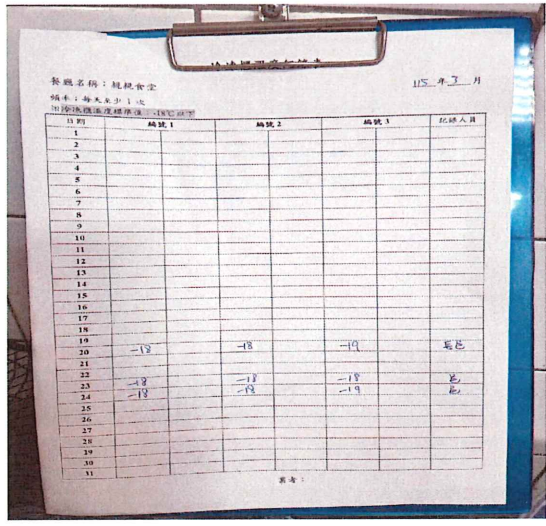 餐廳名稱：親親食堂
115 年 3 月
頻率：每天至少 1 次
冷凍櫃溫度標準值：-18℃以下
日期 編號 1 編號 2 編號 3 記錄人員
1
2
3
4
5
6
7
8
9
10
11
12
13
14
15
16
17
18
19
20 -18 -18 -19
21
22
23 -18 -18 -18
24 -18 -18 -19
25
26
27
28
29
30
31
業者：